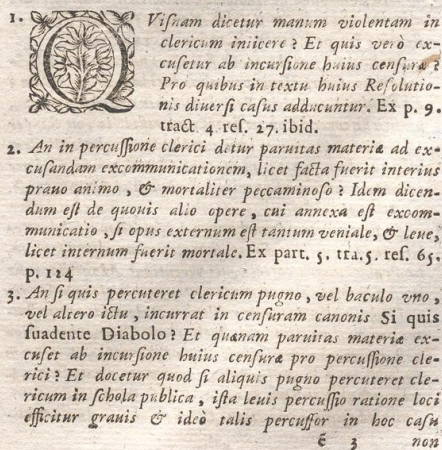 1. QVisnam dicetur manum violentam in
clericum iniicere? Et quis verò ex-
cusetur ab incursione huius censuræ?
Pro quibus in textu huius Resolutio-
nis diuersi casus adducuntur. Ex p. 9.
tract. 4 res. 27. ibid.
2. An in percussione clerici detur paruitas materiæ ad ex-
cusandam excommunicationem, licet facta fuerit interius
prauo animo, & mortaliter peccaminoso? Idem dicen-
dum est de quouis alio opere, cui annexa est excom-
municatio, si opus externum est tantum veniale, & leue,
licet internum fuerit mortale. Ex part. 5. tra. 5. res. 65.
p. 124
3. An si quis percuteret clericum pugno, vel baculo vno,
vel altero ictu, incurrat in censuram canonis Si quis
suadente Diabolo? Et quænam paruitas materiæ ex-
cuset ab incursione huius censuræ pro percussione cle-
rici? Et docetur quod si aliquis pugno percuteret cle-
ricum in schola publica, ista leuis percussio ratione loci
efficitur grauis & ideò talis percussor in hoc casu
3 non